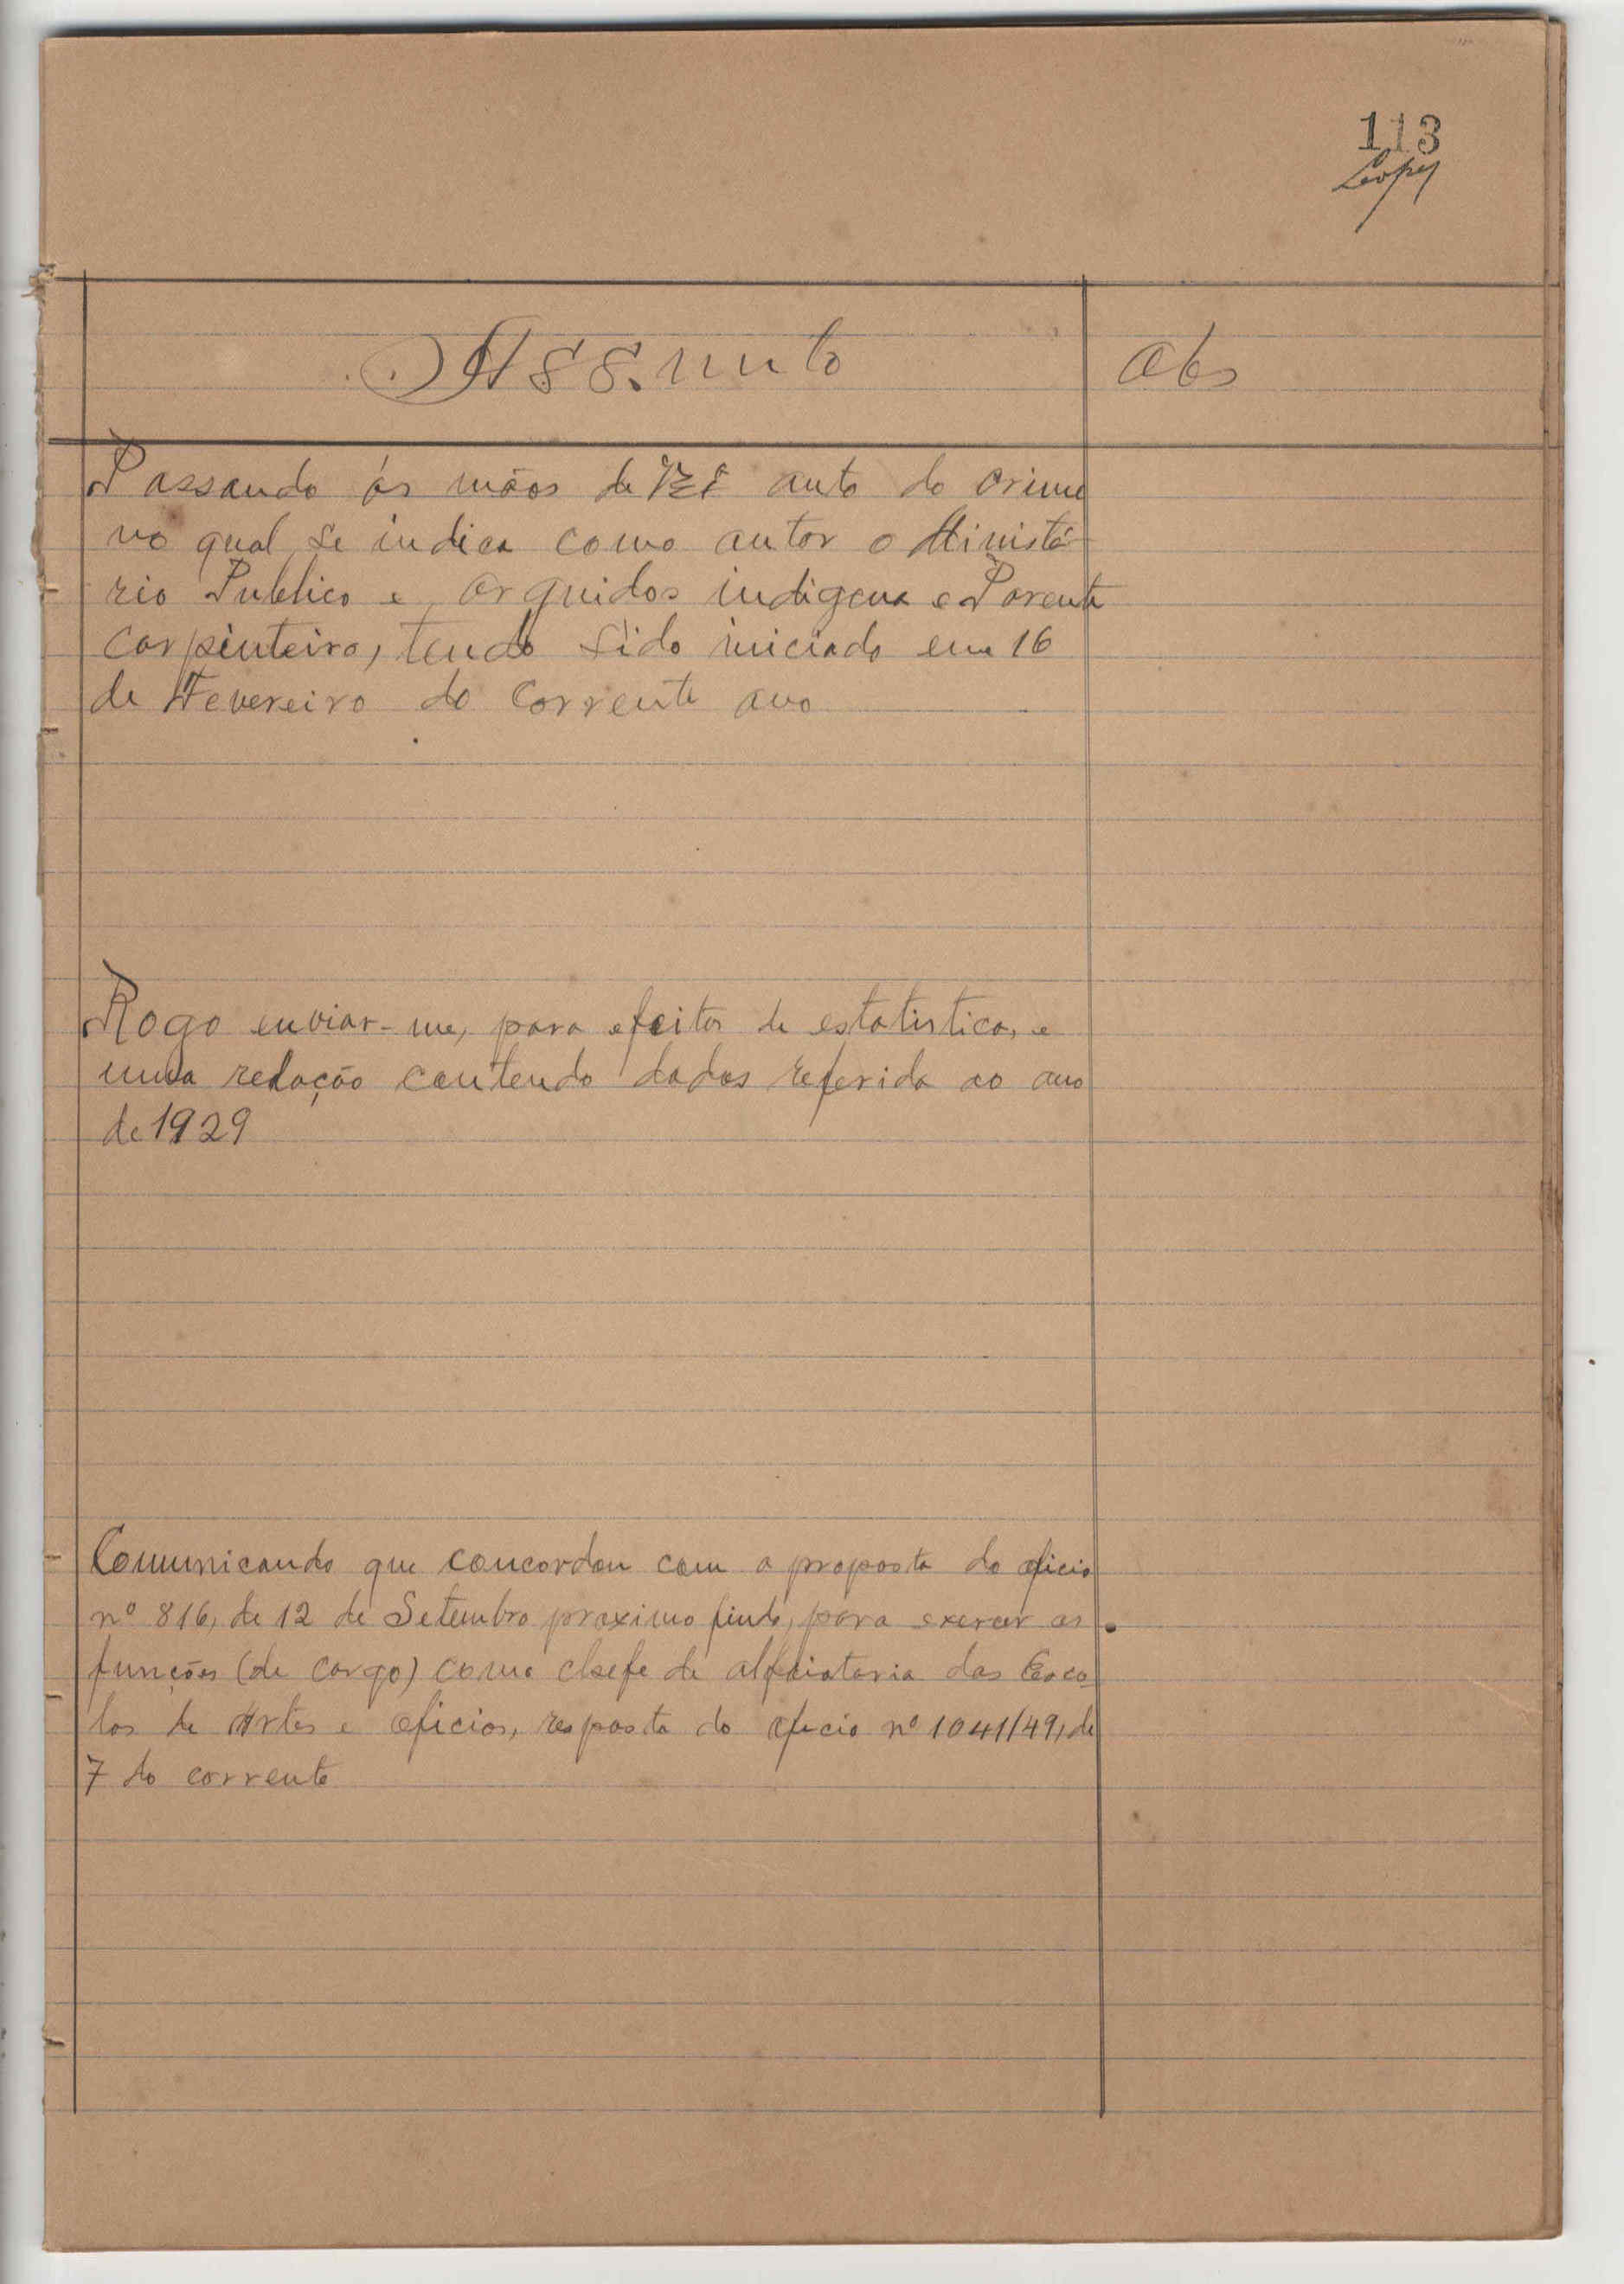 113
Lopes
Assunto
Obs
Passando ás mãos de V. Exª auto do crime
no qual se indica como autor o Ministé-
rio Publico e arguidos indigena e Parente
Carpinteiro, tendo sido iniciado em 16
de Fevereiro do corrente ano
Rogo enviar-me, para efeitos de estatistica, e
uma relação contendo dados referida ao ano
de 1929
Comunicando que concordou com a proposta do oficio
nº 816, de 12 de Setembro proximo findo, para exercer as
funções (de cargo) como chefe de alfaiataria das Esco
las de Artes e oficios, resposta do oficio nº 1041/49, de
7 do corrente